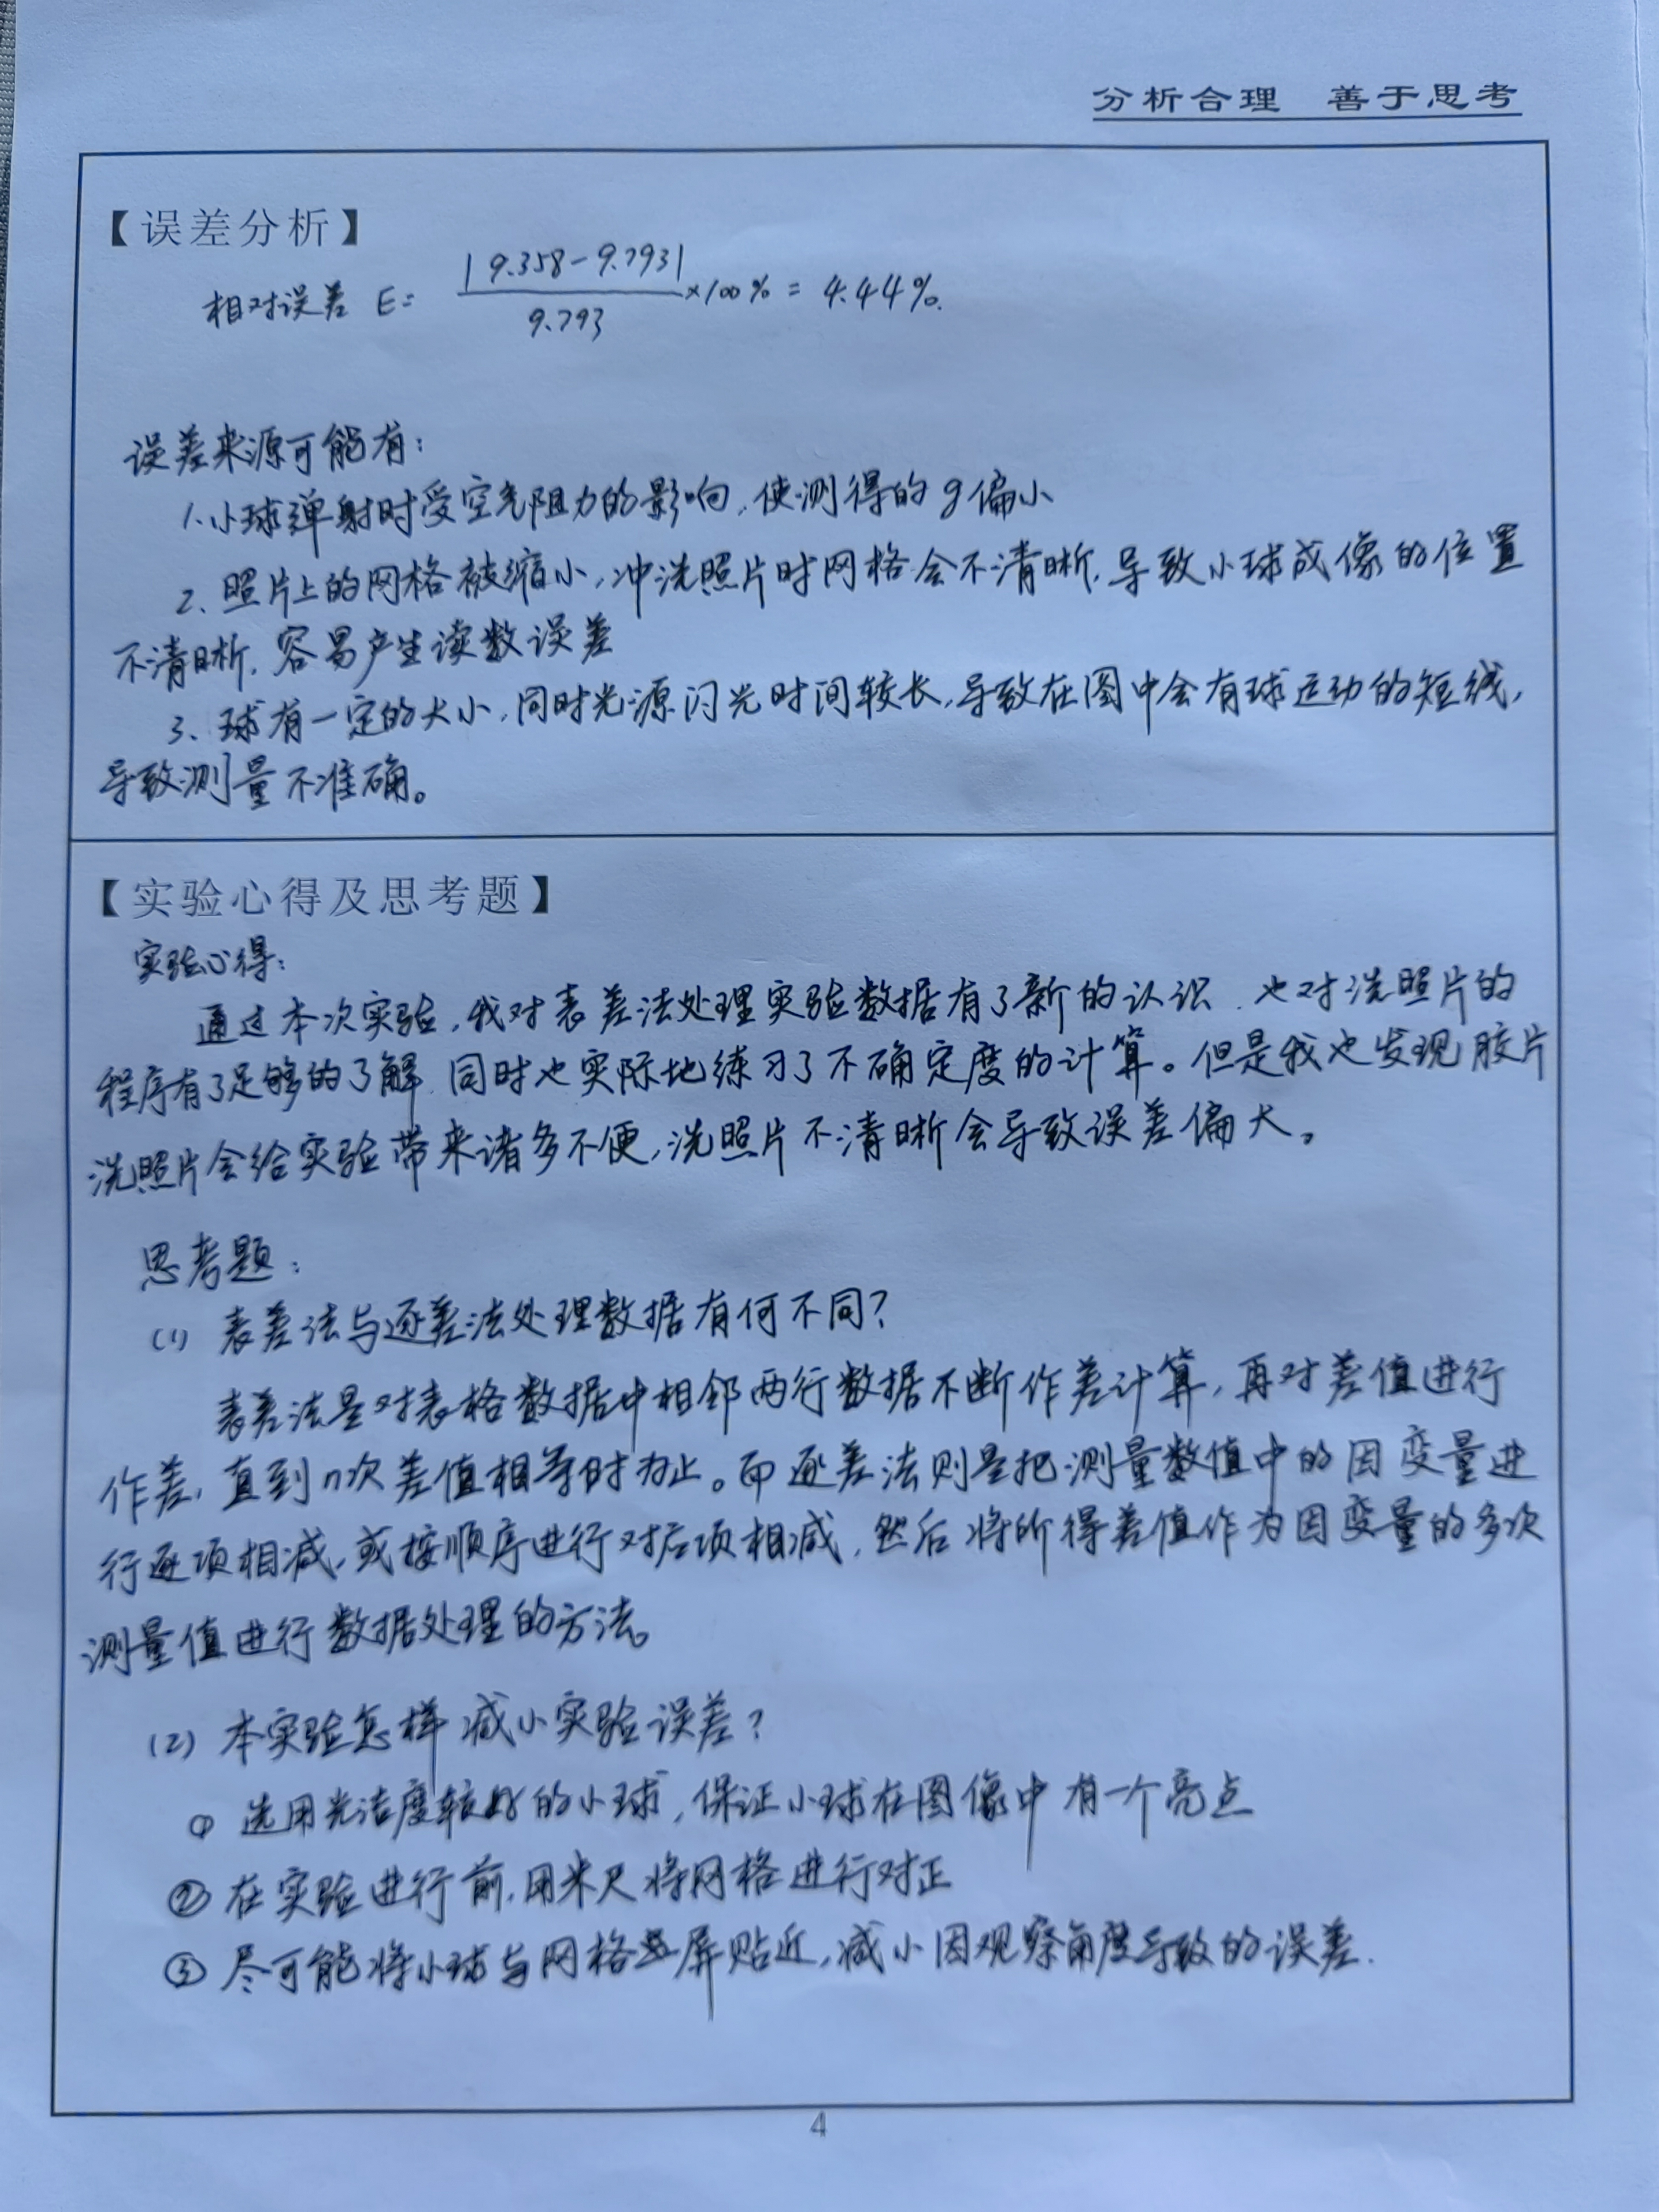 分析合理 善于思考
【误差分析】
相对误差 E= |9.358-9.793| / 9.793 ×100% = 4.44%.
误差来源可能有:
1.小球弹射时受空气阻力的影响,使测得的g偏小
2、照片上的网格被缩小,冲洗照片时网格会不清晰,导致小球成像的位置
不清晰,容易产生读数误差
3、球有一定的大小,同时光源闪光时间较长,导致在图中会有球运动的短线,
导致测量不准确。
【实验心得及思考题】
实验心得:
通过本次实验,我对表差法处理实验数据有了新的认识,也对洗照片的
程序有了足够的了解,同时也实际地练习了不确定度的计算。但是我也发现胶片
洗照片会给实验带来诸多不便,洗照片不清晰会导致误差偏大。
思考题:
(1) 表差法与逐差法处理数据有何不同?
表差法是对表格数据中相邻两行数据不断作差计算,再对差值进行
作差,直到n次差值相等时为止。而逐差法则是把测量数值中的因变量进
行逐项相减,或按顺序进行对后项相减,然后将所得差值作为因变量的多次
测量值进行数据处理的方法。
(2) 本实验怎样减小实验误差?
① 选用光洁度较好的小球,保证小球在图像中有一个亮点
② 在实验进行前,用米尺将网格进行对正
③ 尽可能将小球与网格屏贴近,减小因观察角度导致的误差.
4